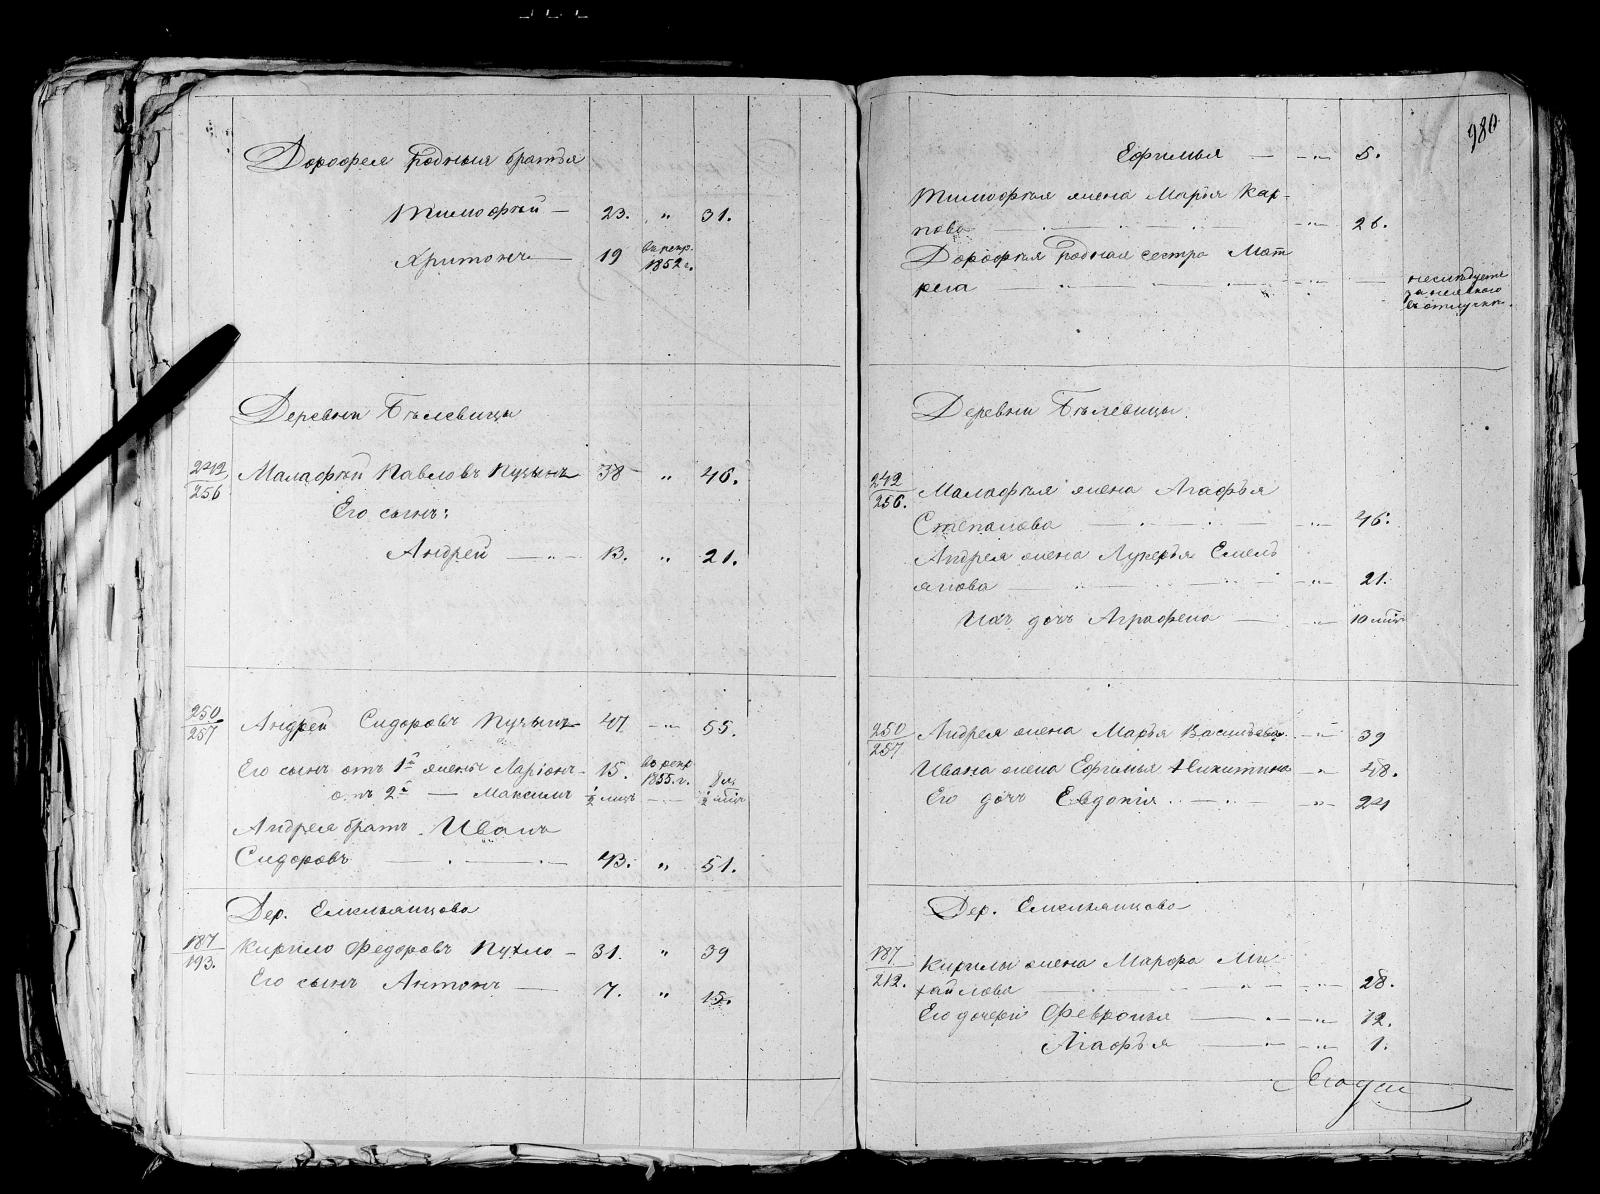 Дорофея родныя братья
Тимофей — 23. " 31.
Харитонъ — 19 въ рекр. 1852 г.
Деревни Бѣлевицы
242/256 Малафѣй Павловъ Пузынъ 38 " 46.
Его сынъ:
Андрей — 13. " 21.
250/257 Андрей Сидоровъ Пузынъ 47 — " — 55.
Его сынъ отъ 1й жены Ларіонъ 15. въ рекр. 1855. г.
отъ 2й — Максимъ ½ мѣц. — 8 л. ½ мѣц
Андрея братъ Иванъ
Сидоровъ — 43. " 51.
Дер. Емельянцово
187/193. Кирило Федоровъ Пухло — 31. " 39
Его сынъ Антонъ — 7. " 15.
980
Ефимья — " — 5.
Тимофѣя жена Марья Кар-
пова — " — 26.
Дорофѣя родная сестра Мат
рена — " —
Деревни Бѣлевицы.
242/256. Малафѣя жена Агафья
Степанова — " — 46.
Андрея жена Лукерья Емель
янова — " — 21.
Ихъ дочь Аграфена — " — 10 мѣц
250/257 Андрея жена Марья Васильева. — " — 39
Ивана жена Ефимья Никитина — " — 48.
Его дочь Евдокія — " — 21
Дер. Емельянцово
187/212. Кирилы жена Марфа Ми
хайлова — " — 28.
Его дочери Февронья — " — 12.
Агафья — " — 1.